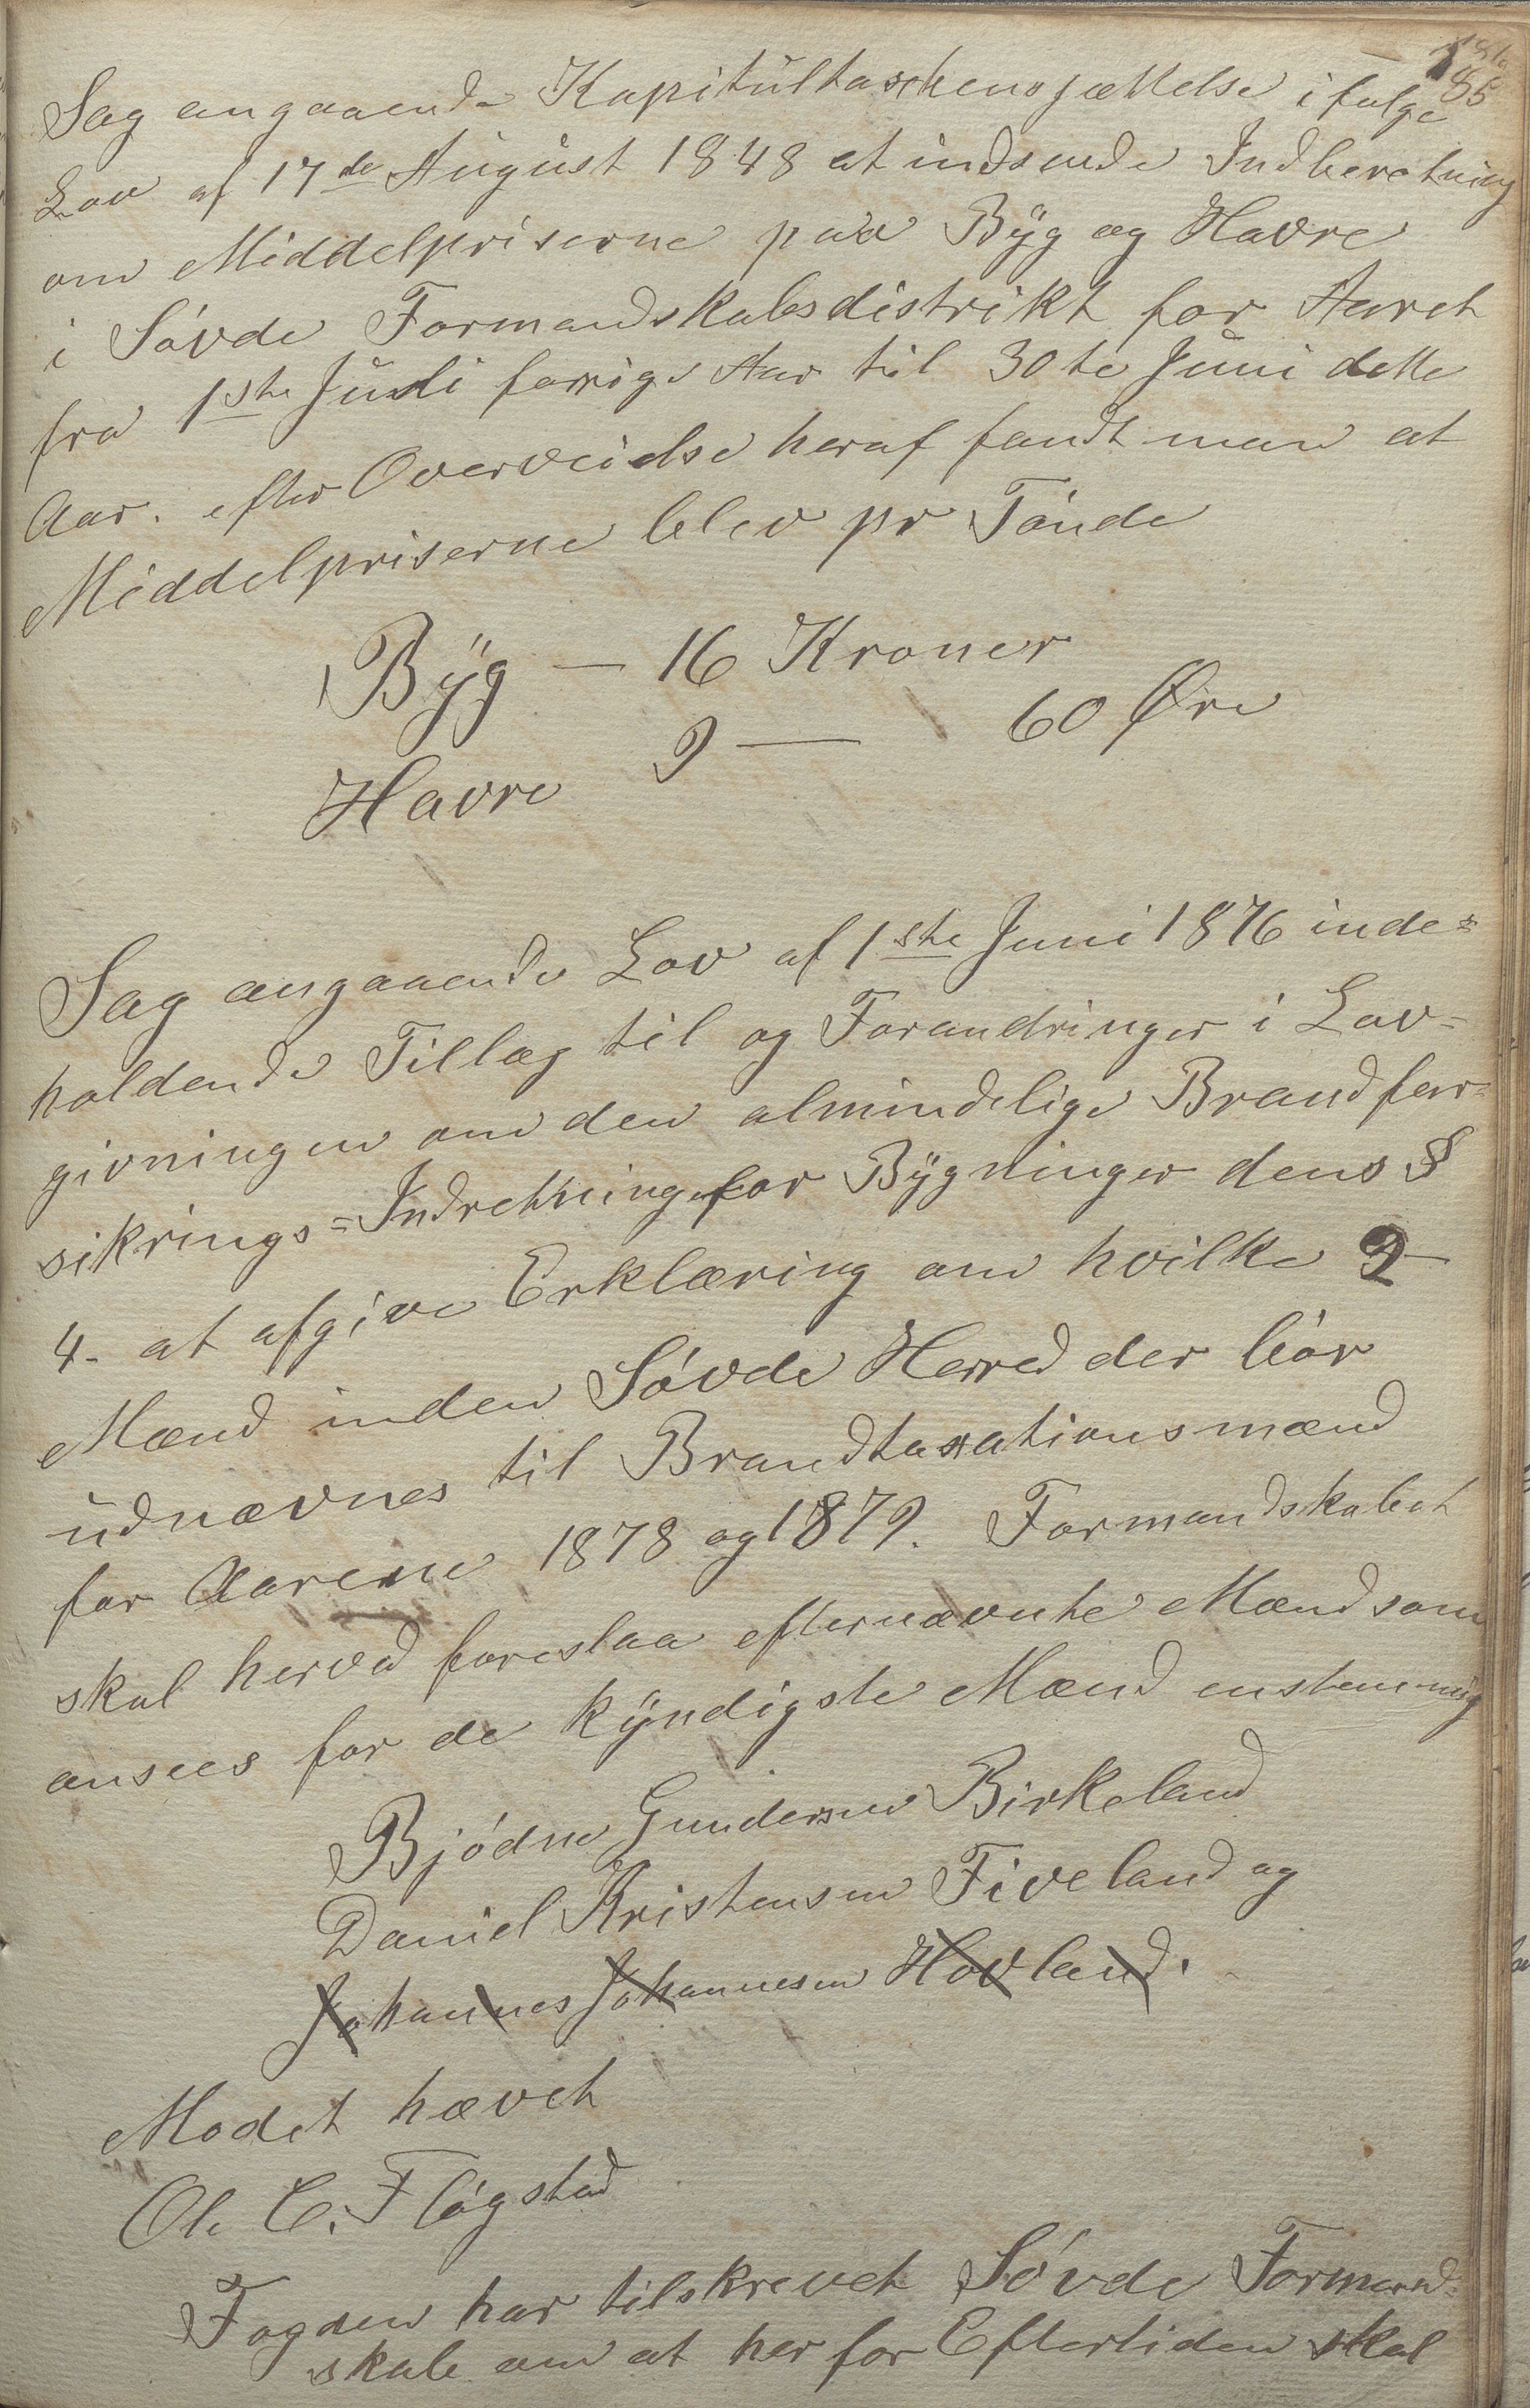 185
Sag angaaende Kapitültaxtens sættelse ifølge
Lov af 17de Aügüst 1848 at indsende Indberetning
om Middelpriserne paa Byg og Havre
i Søvde Formandskabsdistrikt for Aaret
fra 1ste Jüli forrige Aar til 30te Juni dette
Aar. efter Overveielse heraf fandt man at
Middelpriserne blev pr Tønde
Byg — 16 Kroner
Havre 9 — 60 Øre
Sag angaaende Lov af 1ste Juni 1876 inde=
holdende Tillæg til og Forandringer i Lov=
givningen om den almindelige Brandfor=
sikrings=Indretning for Bygninger dens §
4. at afgive Erklæring om hvilke 2
Mænd inden Søvde Herred der bør
üdnævnes til Brandtaxationsmænd
for Aarene 1878 og 1879. Formandskabet
skal herved foreslaa efternævnte Mænd som
ansees for de kyndigste Mænd enstemmig
Bjødne Gundersen Birkeland
Daniel Kristensen Fiveland og
Johannes Johannesen Hovland.
Modet hævet
Ole C. Fløgstad
Fogden har tilskrevet Søvde Formand=
skab om at her for Eftertiden skal